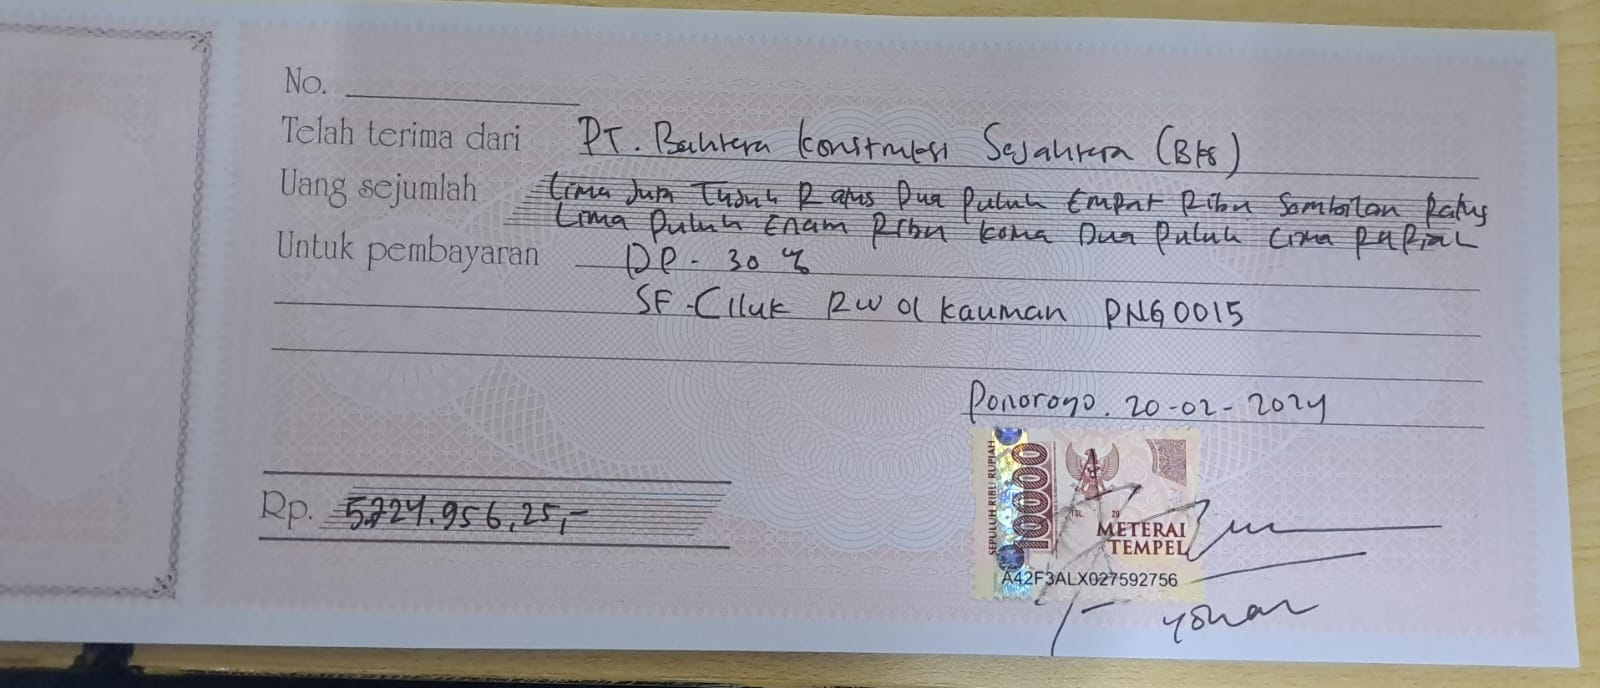 No.
Telah terima dari PT. Bahtera Konstruksi Sejahtera (BKS)
Uang sejumlah Lima Juta Tujuh Ratus Dua Puluh Empat Ribu Sembilan Ratus
Lima Puluh Enam Ribu koma Dua Puluh Lima Rupiah
Untuk pembayaran DP - 30 %
SF - Ciluk RW 01 Kauman PNG0015
Ponorogo. 20-02-2024
Rp. 5.724.956,25,-
SEPULUH RIBU RUPIAH
10000
TGL. 20
METERAI
TEMPEL
A42F3ALX027592756